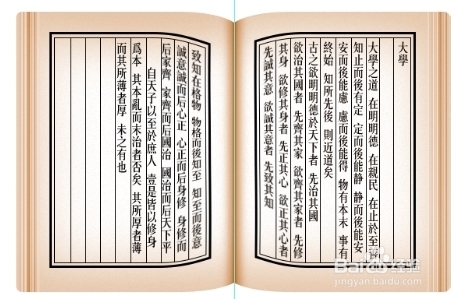 大學
大學之道 在明明德 在親民 在止於至善
知止而後有定 定而後能静 静而後能安
安而後能慮 慮而後能得 物有本末 事有
終始 知所先後 則近道矣
古之欲明明德於天下者 先治其國
欲治其國者 先齊其家 欲齊其家者 先修
其身 欲修其身者 先正其心 欲正其心者
先誠其意 欲誠其意者 先致其知
致知在格物 物格而後知至 知至而後意
誠 意誠而后心正 心正而后身修 身修而
后家齊 家齊而后國治 國治而后天下平
自天子以至於庶人 壹是皆以修身
爲本 其本亂而末治者否矣 其所厚者薄
而其所薄者厚 未之有也
Baidu 经验
jingyan.baidu.com